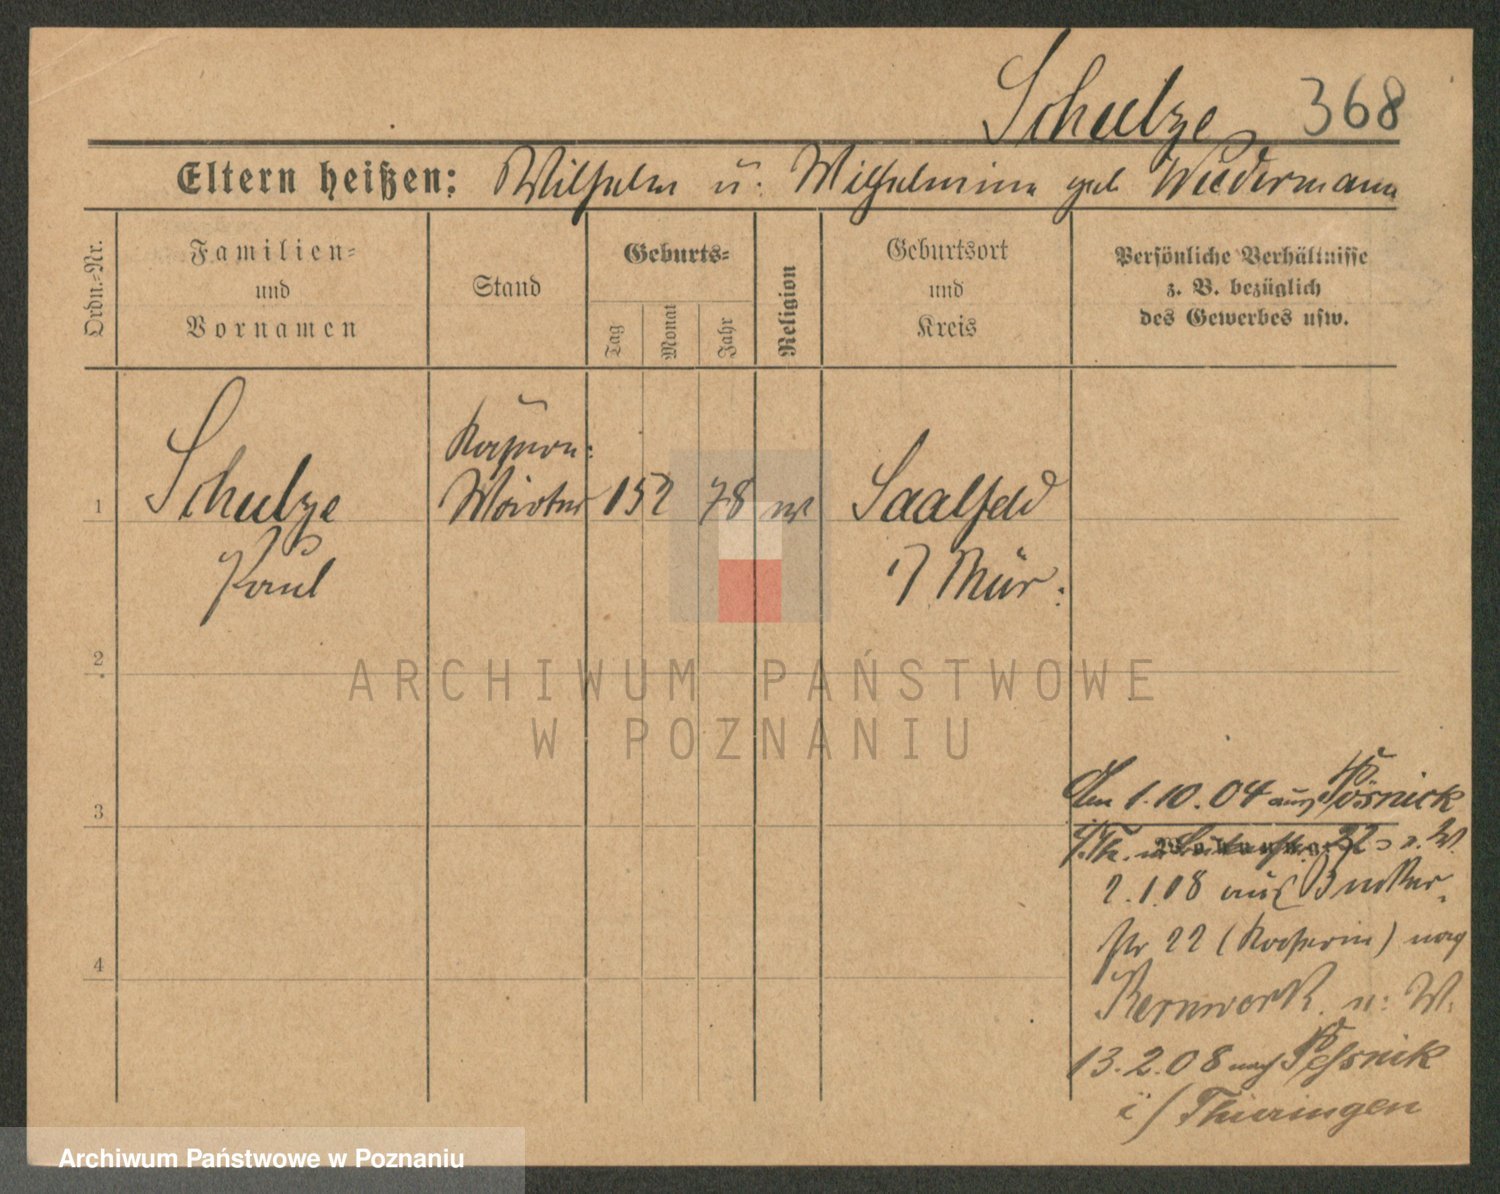 Schulze 368
Eltern heißen: Wilhelm u. Wilhelmine geb Wiedermann
Ordn.-Nr.
Familien-
und
Vornamen
Stand
Geburts-
Tag
Monat
Jahr
Religion
Geburtsort
und
Kreis
Persönliche Verhältnisse
z. B. bezüglich
des Gewerbes usw.
1
Schulze
Paul
Kasern:
Wärter
15 2 78
Saalfeld
i/ Thür:
2
3
4
Am 1.10.04 aus Pösnick
i/Th. 22
2.1.08 aus
22 (Kaserne) nach
Kernwerk n. W.
13.2.08 nach Pessnik
i/ Thüringen
ARCHIWUM PAŃSTWOWE
W POZNANIU
Archiwum Państwowe w Poznaniu